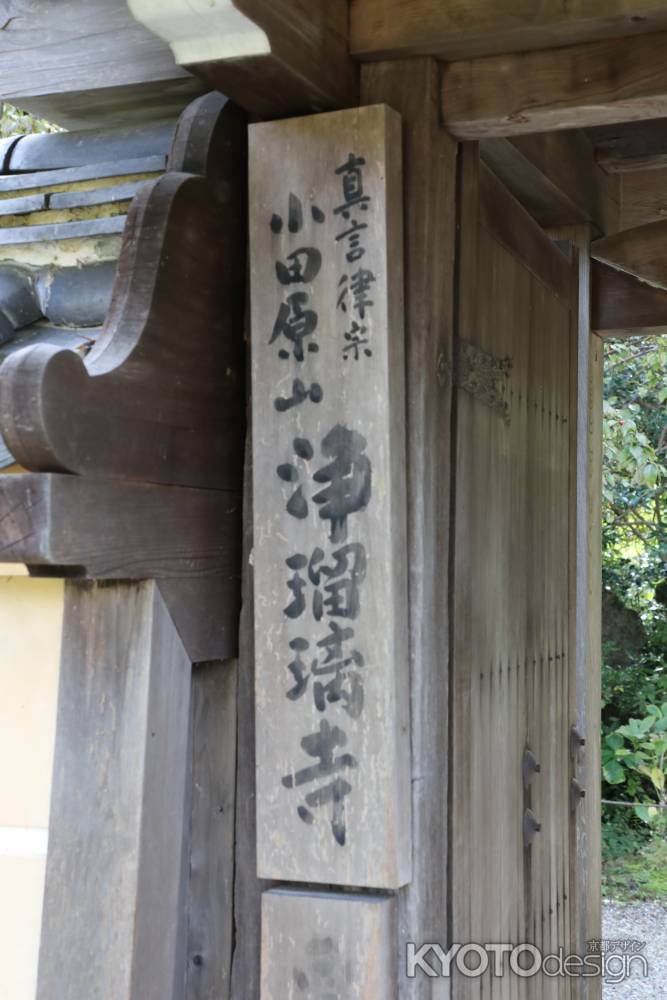 真言律宗
小田原山
浄瑠璃寺
KYOTOdesign
京都デザイン